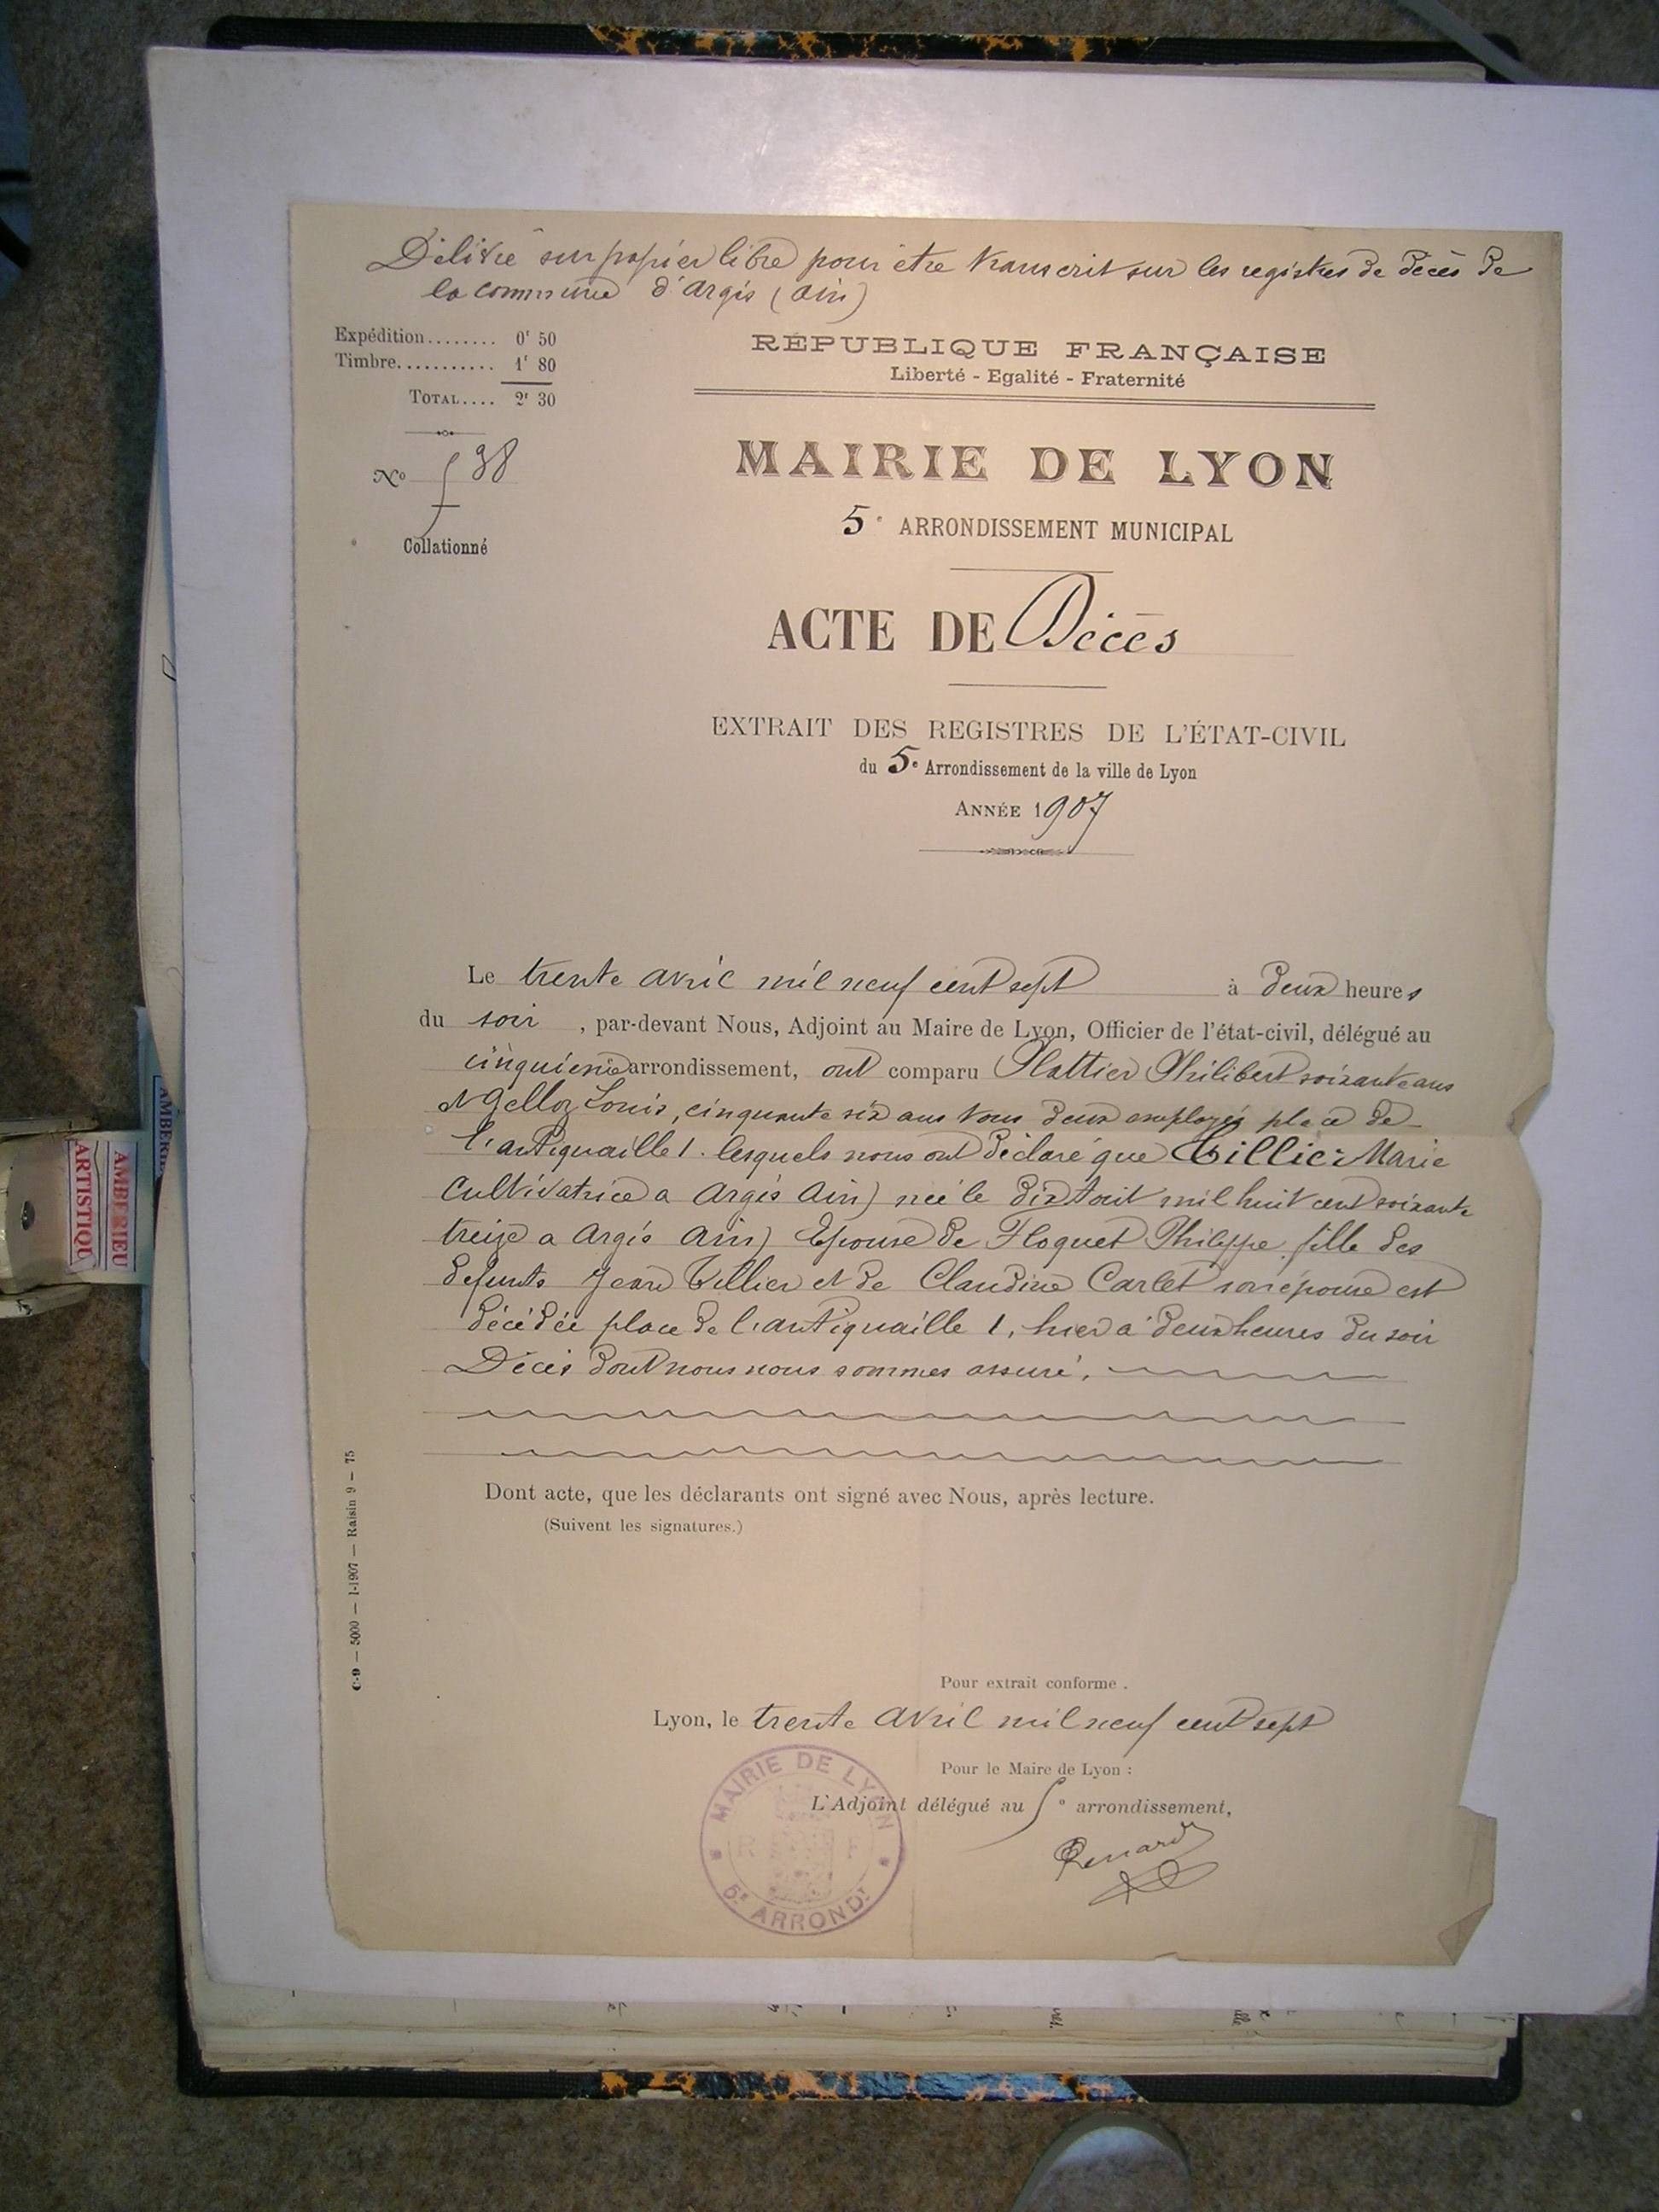 Délivré sur papier libre pour être transcrit sur les registres de décès de
la commune d'Argis (Ain)
Expédition........ 0f 50
Timbre........... 1f 80
TOTAL.... 2f 30
No 538
Collationné
RÉPUBLIQUE FRANÇAISE
Liberté - Egalité - Fraternité
MAIRIE DE LYON
5e ARRONDISSEMENT MUNICIPAL
ACTE DE Décès
EXTRAIT DES REGISTRES DE L'ÉTAT-CIVIL
du 5e Arrondissement de la ville de Lyon
ANNÉE 1907
Le trente avril mil neuf cent sept à deux heures
du soir, par-devant Nous, Adjoint au Maire de Lyon, Officier de l'état-civil, délégué au
cinquième arrondissement, ont comparu Plattier Philibert soixante ans
et Gelloz Louis, cinquante six ans tous deux employés place de
l'antiquaille 1. lesquels nous ont déclaré que Tillier Marie
Cultivatrice a Argis Ain) née le dix Août mil huit cent soixante
treize a Argis Ain) Epouse de Floquet Philippe fille des
defunts Jean Tillier et de Claudine Carlet son épouse est
décédée place de l'antiquaille 1, hier à deux heures du soir
Décès dont nous nous sommes assuré.
Dont acte, que les déclarants ont signé avec Nous, après lecture.
(Suivent les signatures.)
C-9 — 5000 — 1-1907 — Raisin 9 — 75
Pour extrait conforme.
Lyon, le trente Avril mil neuf cent sept
Pour le Maire de Lyon :
L'Adjoint délégué au 5e arrondissement,
Renard
MAIRIE DE LYON
R F
5e ARRONDt
AMBERIEU
ARTISTIQU